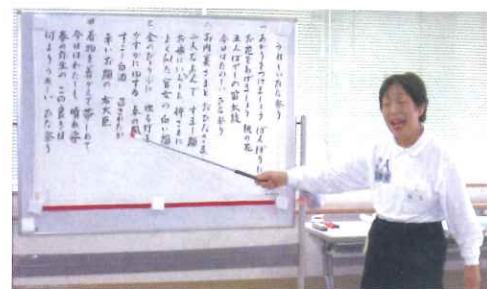 うれしいひな祭り
一 あかりをつけましょう ぼんぼりに
お花をあげましょう 桃の花
五人ばやしの 笛太鼓
今日はたのしい ひな祭り
二 お内裏さまと おひなさま
二人ならんで すまし顔
お嫁にいらした 姉さまに
よく似た 官女の 白い顔
三 金のびょうぶに 映る灯を
かすかにゆする 春の風
すこし白酒 めされたか
赤いお顔の 右大臣
四 着物を着かえて 帯しめて
今日はわたしも 晴れ姿
春の弥生の この良き日
何よりうれしい ひな祭り